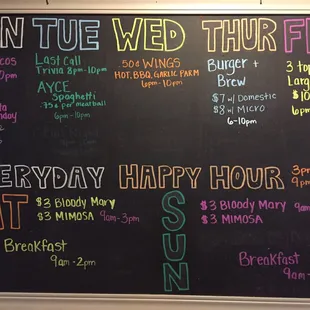 N TUE WED THUR F
COS
0pm
Last Call
Trivia 8pm-10pm
AYCE
Spaghetti
.75¢ per meatball
6pm-10pm
.50¢ WINGS
HOT, BBQ, GARLIC PARM
6pm-10pm
Burger +
Brew
$7 w/ Domestic
$8 w/ Micro
6-10pm
3 top
Larg
$10
6p
ERYDAY HAPPY HOUR 3p
9p
AT
$3 Bloody Mary
$3 MIMOSA 9am-3pm
Breakfast
9am-2pm
SUN
$3 Bloody Mary 9am
$3 MIMOSA
Breakfast
9am-